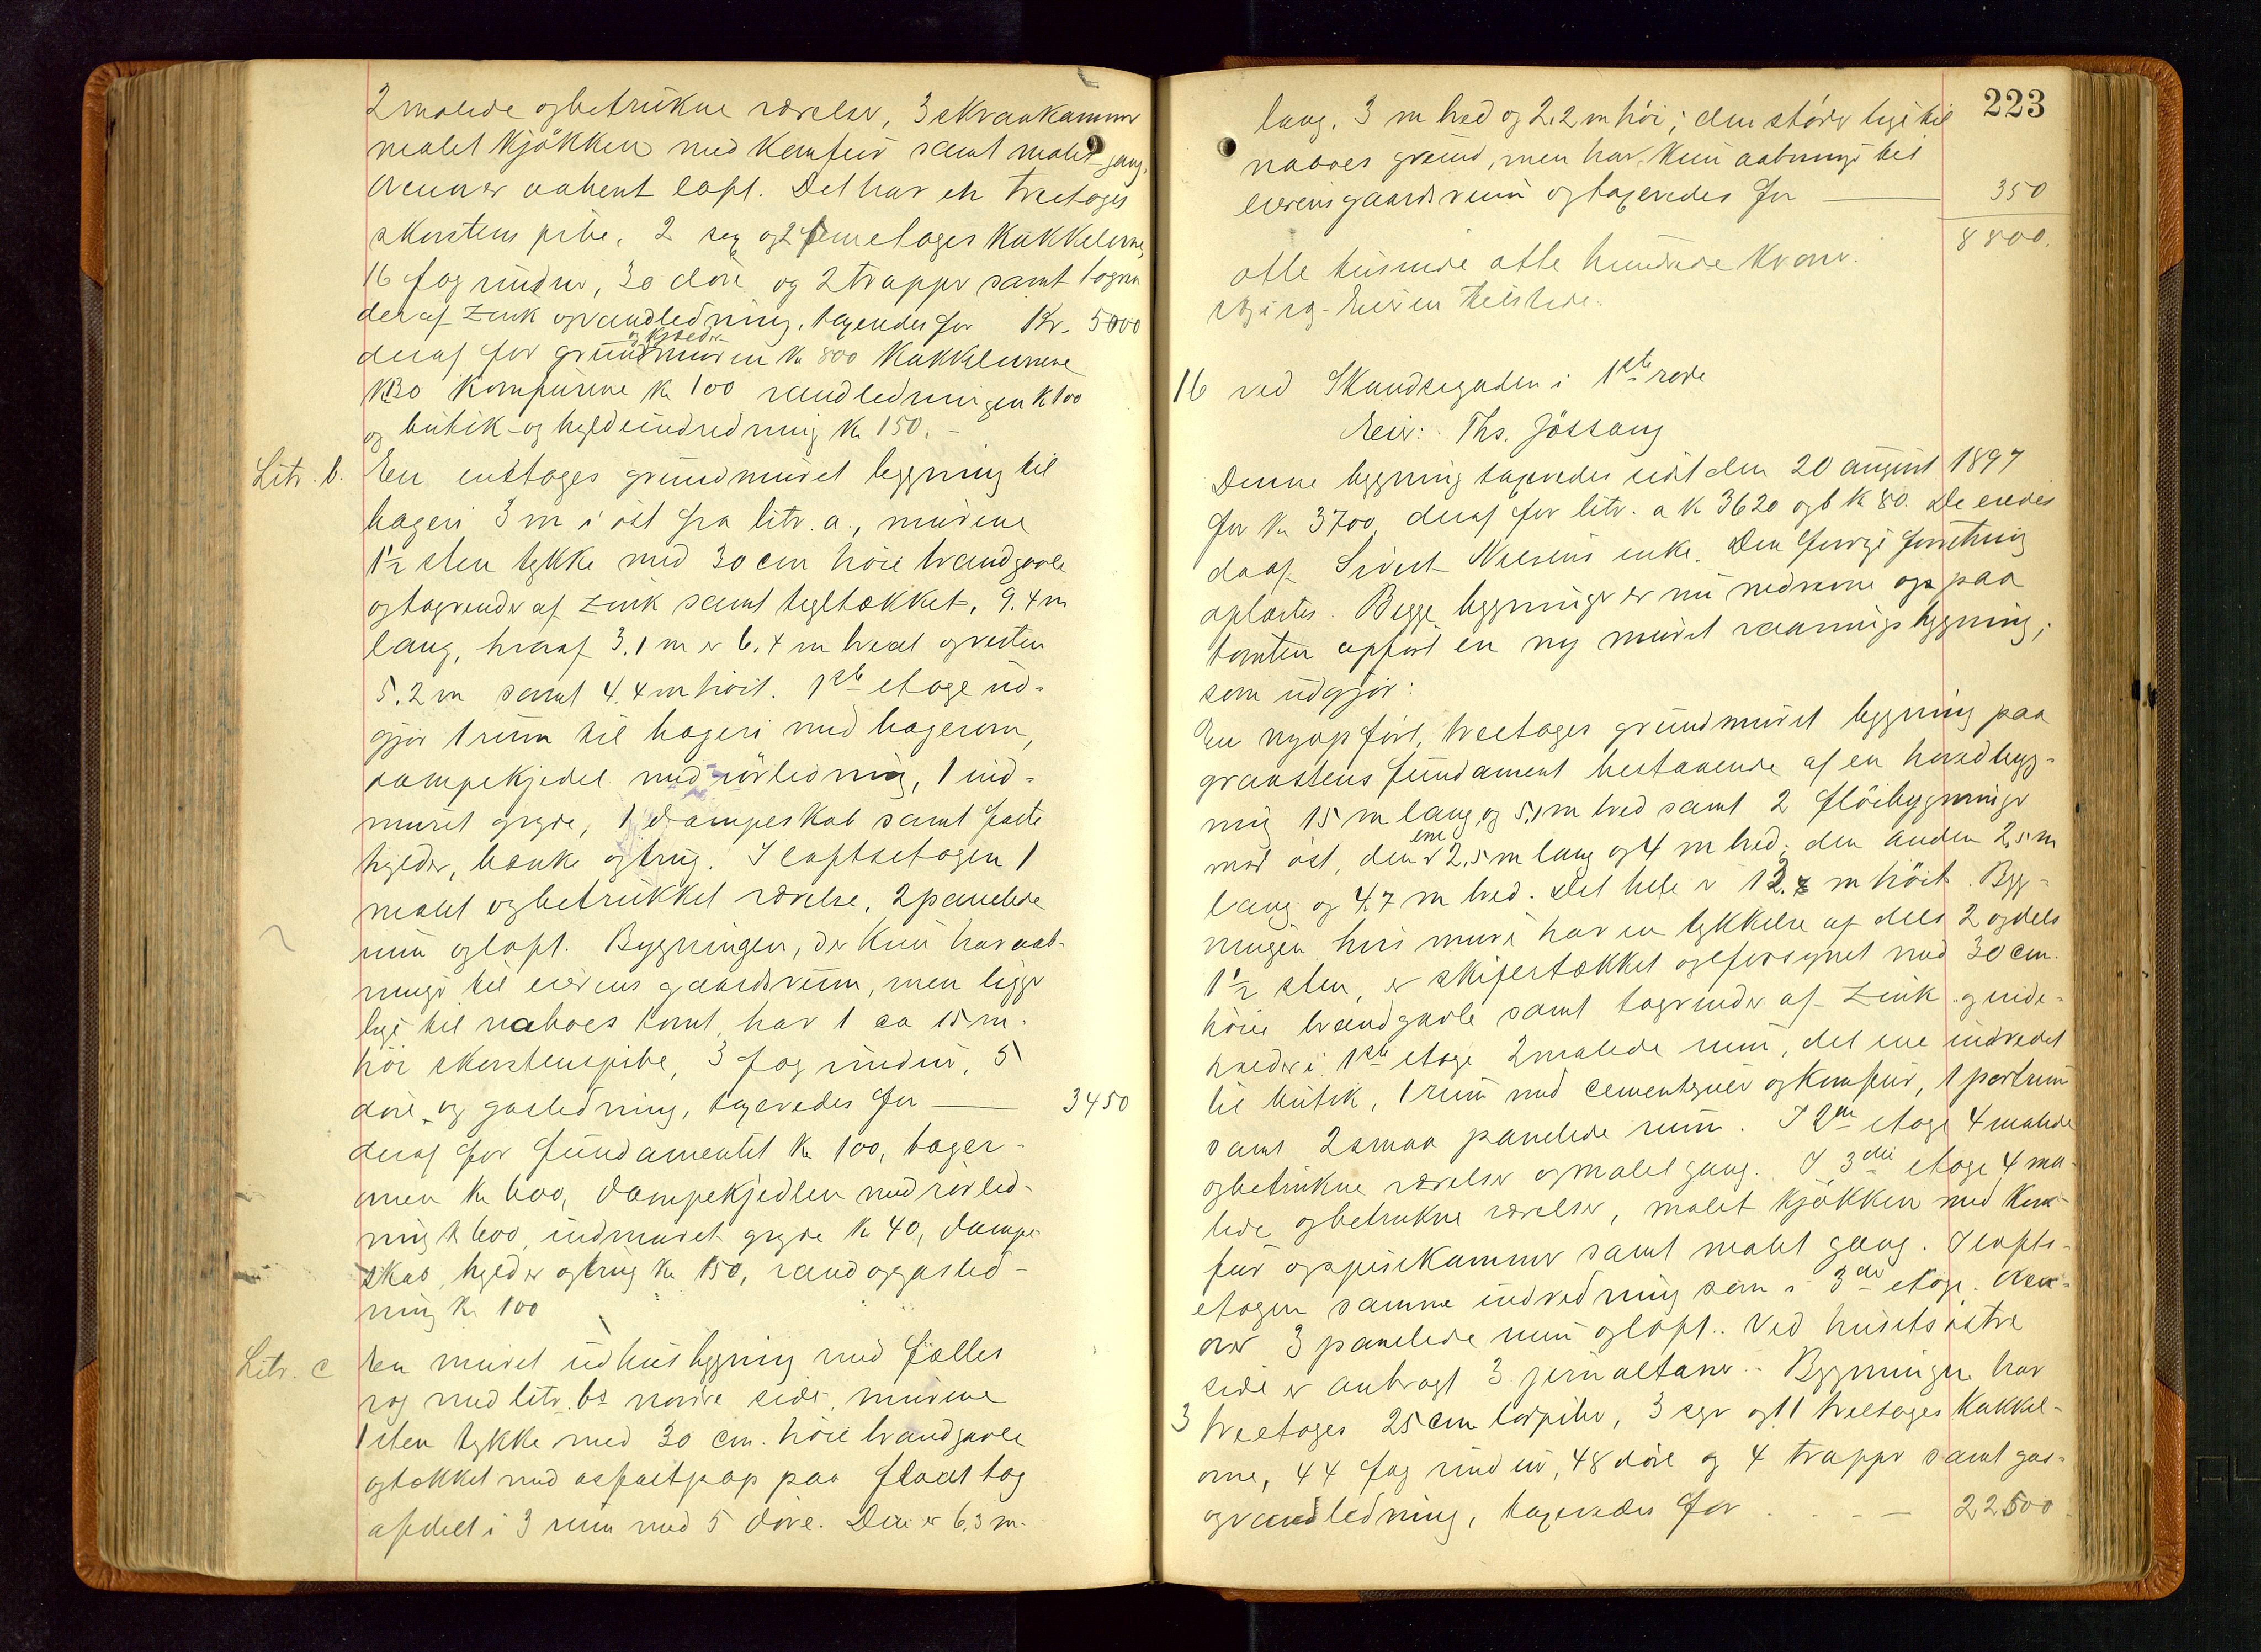 2 malede og betrukne værelser, 3 skraakammer
malet kjøkken med komfur samt malet gang.
Ovenover aabent loft. Det har en treetages
skorstenspibe, 2 og 2 femetages kakkelovne,
16 fag vinduer, 30 døre og 2 trapper samt tagren
der af zink og vandledning, taxeredes for Kr. 5000
og kjelder
deraf for grundmuren k 800 kakkelovnene
k 30 komfurene k 100 vandledningen k 100
og butik- og hyldeindredning k 150.-
Litr. b. En enetages grundmuret bygning til
bageri 3 m i øst fra litr. a., murene
1½ sten tykke med 30 cm høie brandgavle
og tagrender af zink samt tegltækket, 9.4 m
lang, hvoraf 3.1 m er 6.4 m bred og resten
5.2 m samt 4.4 m høit. 1ste etage ud-
gjør 1 rum til bageri med bagerovn,
dampekjedel med rørledning, 1 ind-
muret gryde, 1 dampeskab samt faste
hylder, bænke og trug. I loftsetagen 1
malet og betrukket værelse, 2 panelede
rum og loft. Bygningen, der kun har aab-
ninger til eierens gaardsrum, men ligger
lige til naboes tomt, har 1 ca 15 m.
høi skorstenspibe, 3 fag vinduer, 5
døre og gasledning, taxeredes for — 3450
deraf for fundamentet k 100, bager-
ovnen k 600, dampekjedlen med rørled-
ning k 600, indmuret gryde k 40, dampe-
skab, hylder og trug k 150, vand og gasled-
ning k 100
Litr. c En muret udhusbygning med fælles
væg med litr. bs nordre side, murene
1 sten tykke med 30 cm. høie brandgavle
og tækket med asfaltpap paa fladt tag
afdelt i 3 rum med 5 døre. Den er 6.3 m.
223
lang, 3 m bred og 2.2 m høi; den støder lige til
naboes grund, men har kun aabninger til
eierens gaardsrum og taxeredes for — 350
8800.
otte tusende otte hundrede kroner.
Eieren tilstede.
16 ved Skandsegaden i 1ste rode
Eier: Ths. Jössang
Denne bygning taxeredes sidst den 20 august 1897
for k 3700, deraf for litr. a k 3620 og b k 80. De eiedes
da af Sivert Nilsens enke. Den forrige forretning
oplæstes. Begge bygninger er nu nedrevne og paa
tomten opført en ny muret vaaningsbygning,
som udgjør:
En nyopført, treetages grundmuret bygning paa
graastens fundament bestaaende af en hovedbyg-
ning 15 m lang og 5,1 m bred samt 2 fløibygninger
mod øst, den ene er 2,5 m lang og 4 m bred; den anden 2,5 m
lang og 4.7 m bred. Det hele er 12. m høit. Byg-
ningen hvis mure har en tykkelse af dels 2 og dels
1½ sten, er skifertækket og forsynet med 30 cm.
høie brandgavle samt tagrender af zink og inde-
holder i 1ste etage 2 malede rum, det ene indredet
til butik, 1 rum med cementgulv og komfur, 1 portrum
samt 2 smaa panelede rum. I 2den etage 4 malede
og betrukne værelser og malet gang. I 3die etage 4 ma-
lede og betrukne værelser, malet kjøkken med kom-
fur og spisekammer samt malet gang. I lofts-
etagen samme indredning som i 3die etage. Oven-
over 3 panelede rum og loft. Ved husets østre
side er anbragt 3 jernaltaner. Bygningen har
3 treetages 25 cm løbpiber, 3 og 11 treetages kakkel-
ovne, 44 fag vinduer, 48 døre og 4 trapper samt gas-
og vandledning, taxeredes for . . — — 22500